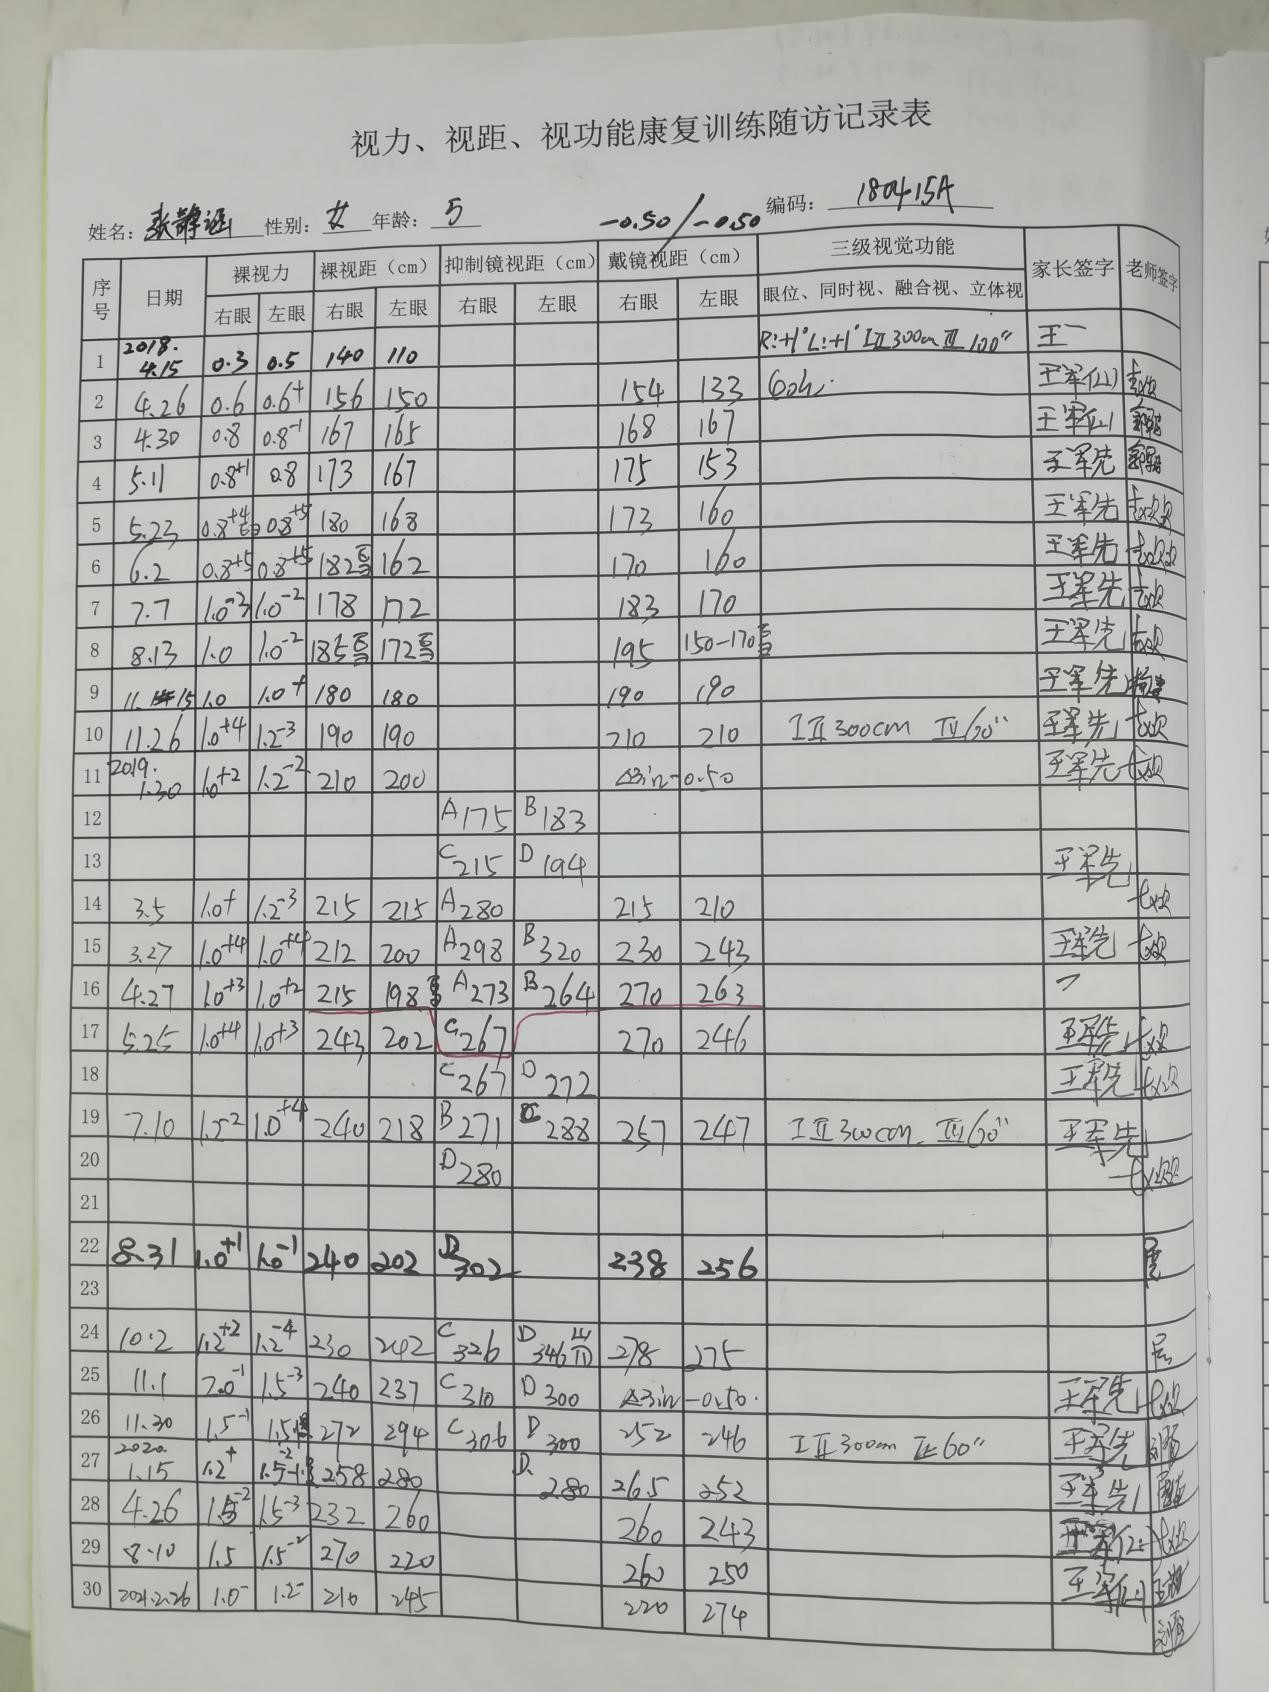 视力、视距、视功能康复训练随访记录表
姓名: 张静涵 性别: 女 年龄: 5 -0.50/-0.50 编码: 180415A
序号 日期 裸视力 裸视距（cm） 抑制镜视距（cm） 戴镜视距（cm） 三级视觉功能 家长签字 老师签字
右眼 左眼 右眼 左眼 右眼 左眼 右眼 左眼 眼位、同时视、融合视、立体视
1 2018.4.15 0.3 0.5 140 110 R:+1° L:+1° I II 300cm III 100" 王一
2 4.26 0.6 0.6+ 156 150 154 133
3 4.30 0.8 0.8-1 167 165 168 167
4 5.11 0.8+1 0.8 173 167 175 153 王军先
5 5.23 0.8+4 0.8+5 180 168 173 160 王军先
6 6.2 0.8+5 0.8+5 182 162 170 160 王军先
7 7.7 1.0-3 1.0-2 178 172 183 170 王军先
8 8.13 1.0 1.0-2 185 172 195 150-170 王军先
9 11.15 1.0 1.0+ 180 180 190 190 王军先
10 11.26 1.0+4 1.2-3 190 190 210 210 I II 300cm III 60" 王军先
11 2019.1.30 1.0+2 1.2-2 210 200 △3in-0.50 王军先
12 A175 B183
13 C215 D194 王军先
14 3.5 1.0+ 1.2-3 215 215 A280 215 210
15 3.27 1.0+4 1.0+4 212 200 A298 B320 230 243 王军先
16 4.27 1.0+3 1.0+2 215 198 A273 B264 270 263
17 5.25 1.0+4 1.0+3 243 202 C267 270 246 王军先
18 C267 D272 王军先
19 7.10 1.2-2 1.0+4 240 218 B271 C288 257 247 I II 300cm III 60" 王军先
20 D280
21
22 8.31 1.0+1 1.0-1 240 202 D302 238 256
23
24 10.2 1.2+2 1.2-4 230 242 C326 D346 278 275
25 11.1 2.0-1 1.5-3 240 237 C310 D300 △3in-0.50 王军先
26 11.30 1.5-1 1.5 272 294 C306 D300 252 246 I II 300cm III 60" 王军先
27 2020.1.15 1.2+ 1.5-2 258 280 D280 265 252 王军先
28 4.26 1.5-2 1.5-3 232 260 260 243
29 8.10 1.5 1.5-2 270 220 260 250
30 2021.2.26 1.0- 1.2- 210 245 220 274